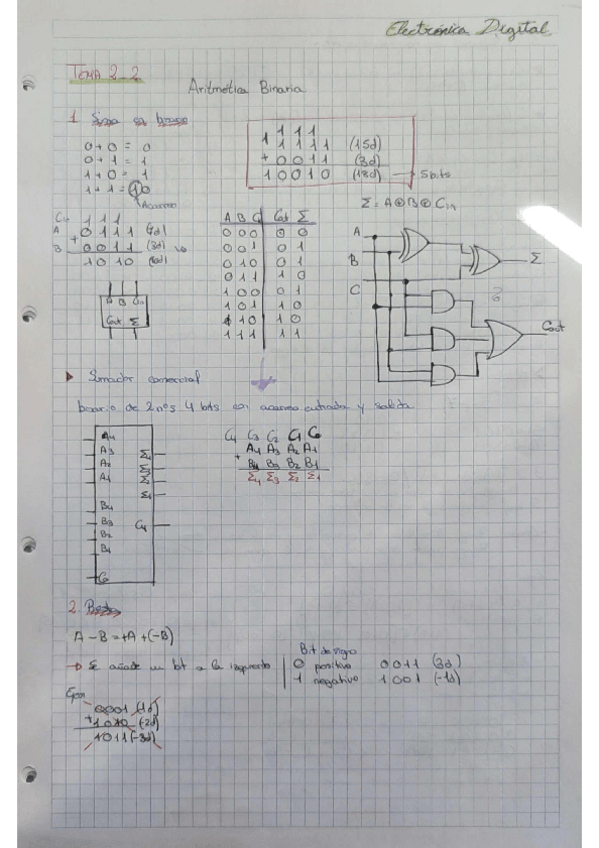 Electrónica Digital
TEMA 2-2
Aritmética Binaria
1 Suma en binario
0 + 0 = 0
0 + 1 = 1
1 + 0 = 1
1 + 1 = 10
Acarreo
1 1 1 1
1 1 1 1 (15d)
+ 0 0 1 1 (3d)
1 0 0 1 0 (18d) → 5 bits
Σ = A ⊕ B ⊕ Cin
Cin 1 1 1
A 0 1 1 1 (7d)
+
B 0 0 1 1 (3d)
1 0 1 0
A B Cin
Cout Σ
A B C Cout Σ
0 0 0 0 0
0 0 1 0 1
0 1 0 0 1
0 1 1 1 0
1 0 0 0 1
1 0 1 1 0
1 1 0 1 0
1 1 1 1 1
A
B
C
Σ
?
Cout
Sumador comercial
binario de 2 nos 4 bits con acarreo entrada y salida
A4
A3
A2
A1
Σ4
Σ3
Σ
Σ1
B4
B3
B2
B1
C4
C0
C4 C3 C2 C1 C0
A4 A3 A2 A1
+
B4 B3 B2 B1
Σ4 Σ3 Σ2 Σ1
2. Resta
A - B = +A + (-B)
→ Se añade un bit a la izquierda
Bit de signo
0 positivo 0 0 1 1 (3d)
1 negativo 1 0 0 1 (-1d)
0001 (1d)
+ 1010 (-2d)
1011 (-3d)